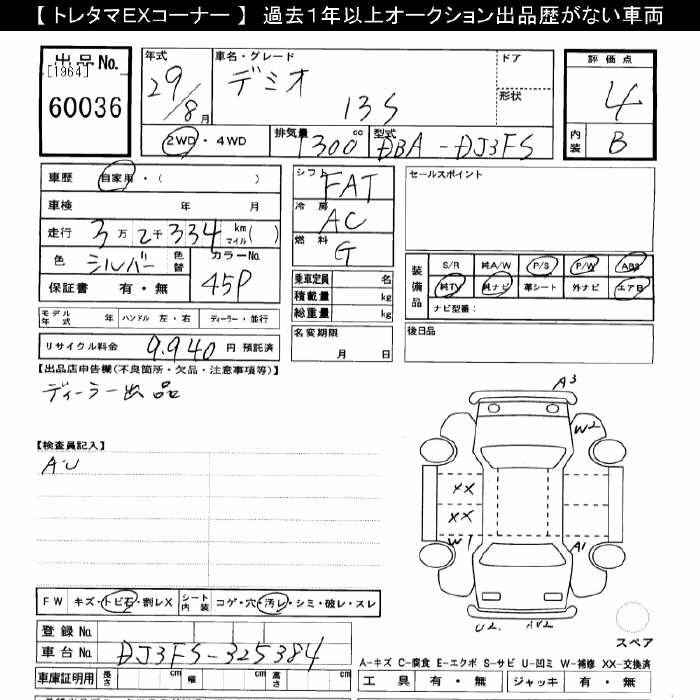 【 トレタマEXコーナー 】 過去1年以上オークション出品歴がない車両
出品No. [1964] 60036
年式 29/8月
車名・グレード デミオ 13S
ドア
形状
評価点 4
内装 B
2WD・4WD 排気量 1300 cc 型式 DBA-DJ3FS
車歴 自家用・( )
車検 年 月
走行 3万2千334 km マイル ( )
色 シルバー 色替 カラーNo. 45P
保証書 有・無
シフト FAT
冷房 AC
燃料 G
乗車定員 名
積載量 kg
総重量 kg
セールスポイント
装備品 S/R 純A/W P/S P/W ABS
純TV 純ナビ 革シート 外ナビ エアB
ナビ型番:
モデル年式 年 ハンドル 左・右 ディーラー・並行
名変期限 月 日
後日品
リサイクル料金 9,940 円 預託済
【出品店申告欄(不良箇所・欠品・注意事項等)】
ディーラー出品
【検査員記入】
A・U
A3
W2
XX
XX
W1
A1
U2
AU2
FW キズ・トビ石・割レX シート内装 コゲ・穴・汚レ・シミ・破レ・スレ
登録No.
車台No. DJ3FS-325384
スペア
車庫証明用 長さ cm 幅 cm 高さ cm
A-キズ C-腐食 E-エクボ S-サビ U-凹ミ W-補修 XX-交換済
工具 有・無 ジャッキ 有・無